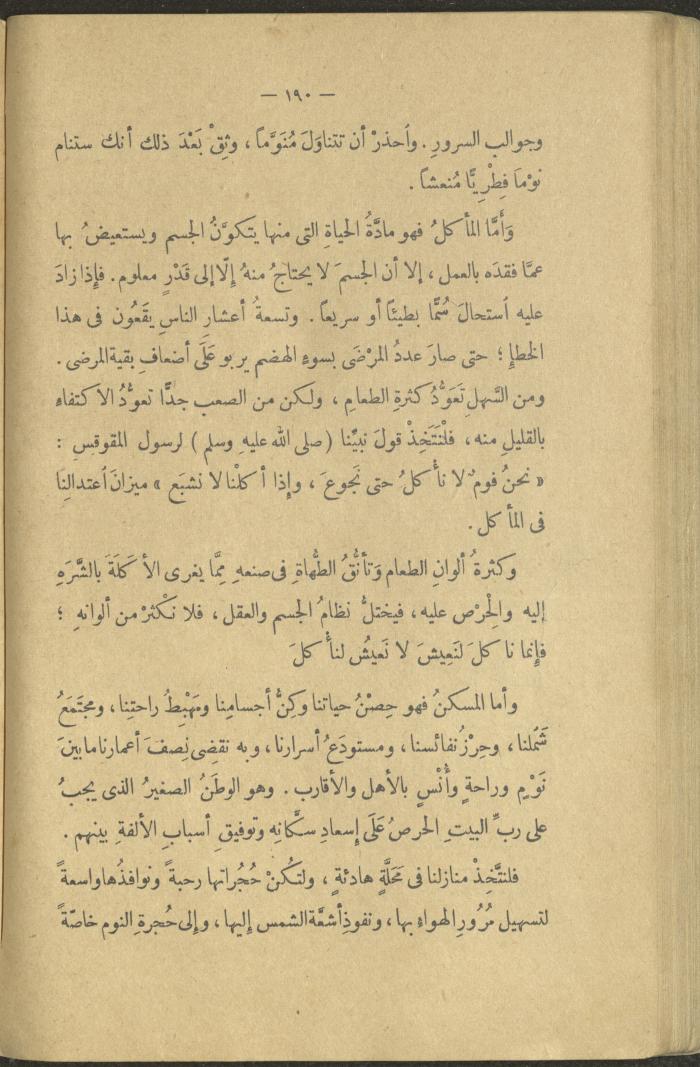 — ١٩٠ —
وجوالب السرورِ . واُحذرْ أن تتناوَلَ مُنَوِّماً ، وثِقْ بَعْدَ ذلك أنك ستنام
نوْماً فِطْرِيًّا مُنعشاً .
وَأَمَّا المأكلُ فهو مادَّةُ الحياةِ التى منها يتكوَّنُ الجسم ويستعيضُ بها
عمَّا فقدَه بالعمل ، إلا أن الجسمَ لا يحتاجُ منهُ إِلَّا إلى قَدْرٍ معلوم . فإِذا زادَ
عليه اُستحالَ سُمًّا بطيئاً أو سريعاً . وتسعةُ أعشارِ الناسِ يقَعُون فى هذا
الخطإِ ؛ حتى صارَ عددُ المرْضَى بسوءِ الهضم يربو عَلَى أضعافِ بقية المرضى .
ومن السَّهلِ تَعَوُّدُ كثرةِ الطعامِ ، ولكن من الصعب جدًّا تعوُّدُ الاكتفاءِ
بالقليلِ منه ، فلْنَتَّخِذْ قولَ نبيِّنا ( صلى الله عليهِ وسلم ) لرسول المقوقس :
« نحنُ قومٌ لا نأْكلُ حتى نَجُوعَ ، وإِذا أكلْنا لا نشبَع » ميزانَ اُعتدالِنا
فى المأكل .
وكثرةُ ألوانِ الطعام وَتأنُّقُ الطُّهاةِ فى صنعهِ مِمَّا يغرى الأكَلَةَ بالشَّرَهِ
إليه والْحِرْص عليه ، فيختلُّ نظامُ الجسم والعقل ، فلا نكْثرْ من ألوانهِ ؛
فإِنما ناكلَ لنَعِيشَ لا نَعيشُ لنأْكلَ
وأما المسكنُ فهو حِصْنُ حياتنا وكِنُّ أجسامِنا ومَهْبِطُ راحتِنا ، ومجتَمَعُ
شَمْلنا ، وحِرْزُ نفائسنا ، ومستودَعُ أسرارنا ، وبه نقضِى نِصفَ أعمارنا ما بينَ
نَوْمٍ وراحةٍ وأُنْسٍ بالأهل والأقارب . وهو الوطَنُ الصغيرُ الذى يجبُ
على ربِّ البيتِ الحرصُ عَلَى إِسعادِ سكَّانهِ وتوفيقِ أسبابِ الألفةِ بينهم .
فلنتَّخِذْ منازلنا فى مَحَلَّةٍ هادئةٍ ، ولتكُنْ حُجُراتها رحبةً ونوافذُها واسعةً
لتسهيل مرُورِ الهواءِ بها ، ونفوذِ أشعَّة الشمس إليها ، وإلى حُجرةِ النوم خاصّةً